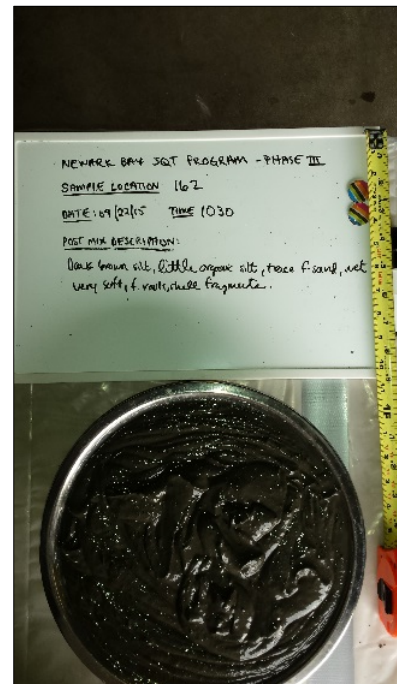 NEWARK BAY SQT PROGRAM - PHASE III
SAMPLE LOCATION 162
DATE: 09/22/15 TIME 1030
POST MIX DESCRIPTION:
Dark brown silt, little organic silt, trace f-sand, wet
very soft, f. roots, shell fragments.